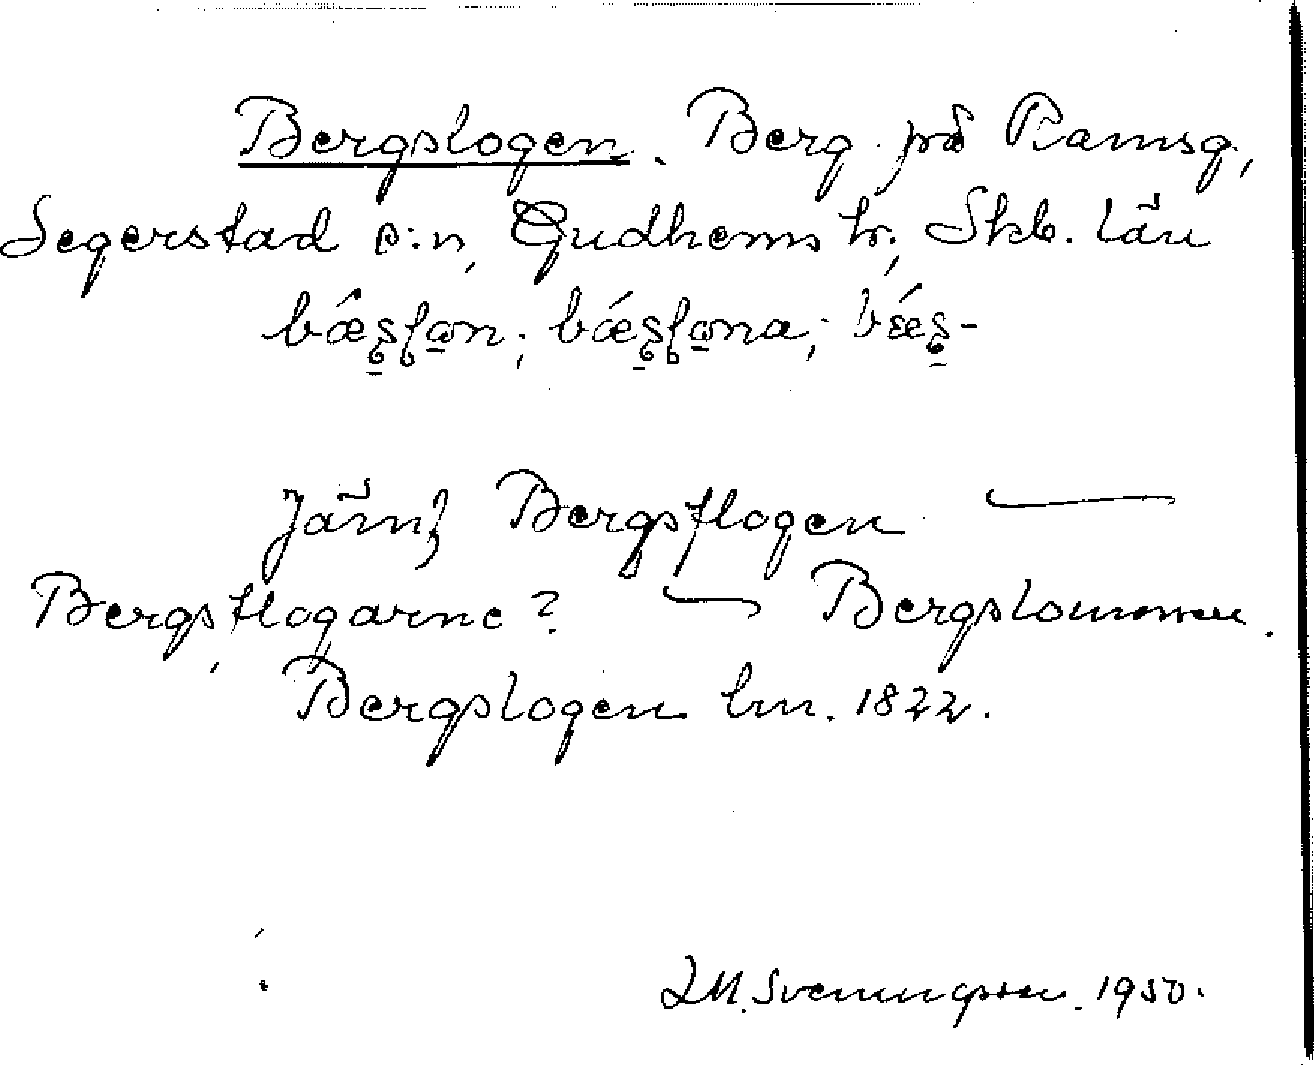 Bergslogen. Berg på Ramsg,
Segerstad s:n, Gudhems hr, Skb. län
Jämf Bergsflogen —
Bergsflogarne? — Bergslommen.
Bergslogen lm. 1822.
Svenungsson. 1950.